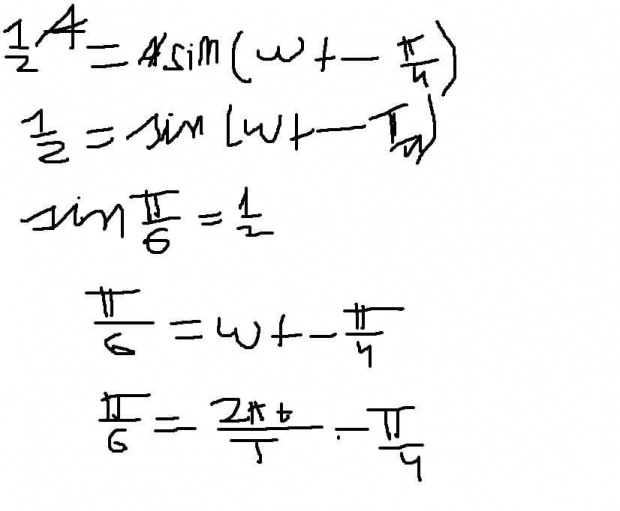 1/2 A = A sin(ωt - π/4)
1/2 = sin(ωt - π/4)
sin π/6 = 1/2
π/6 = ωt - π/4
π/6 = 2πt/T - π/4